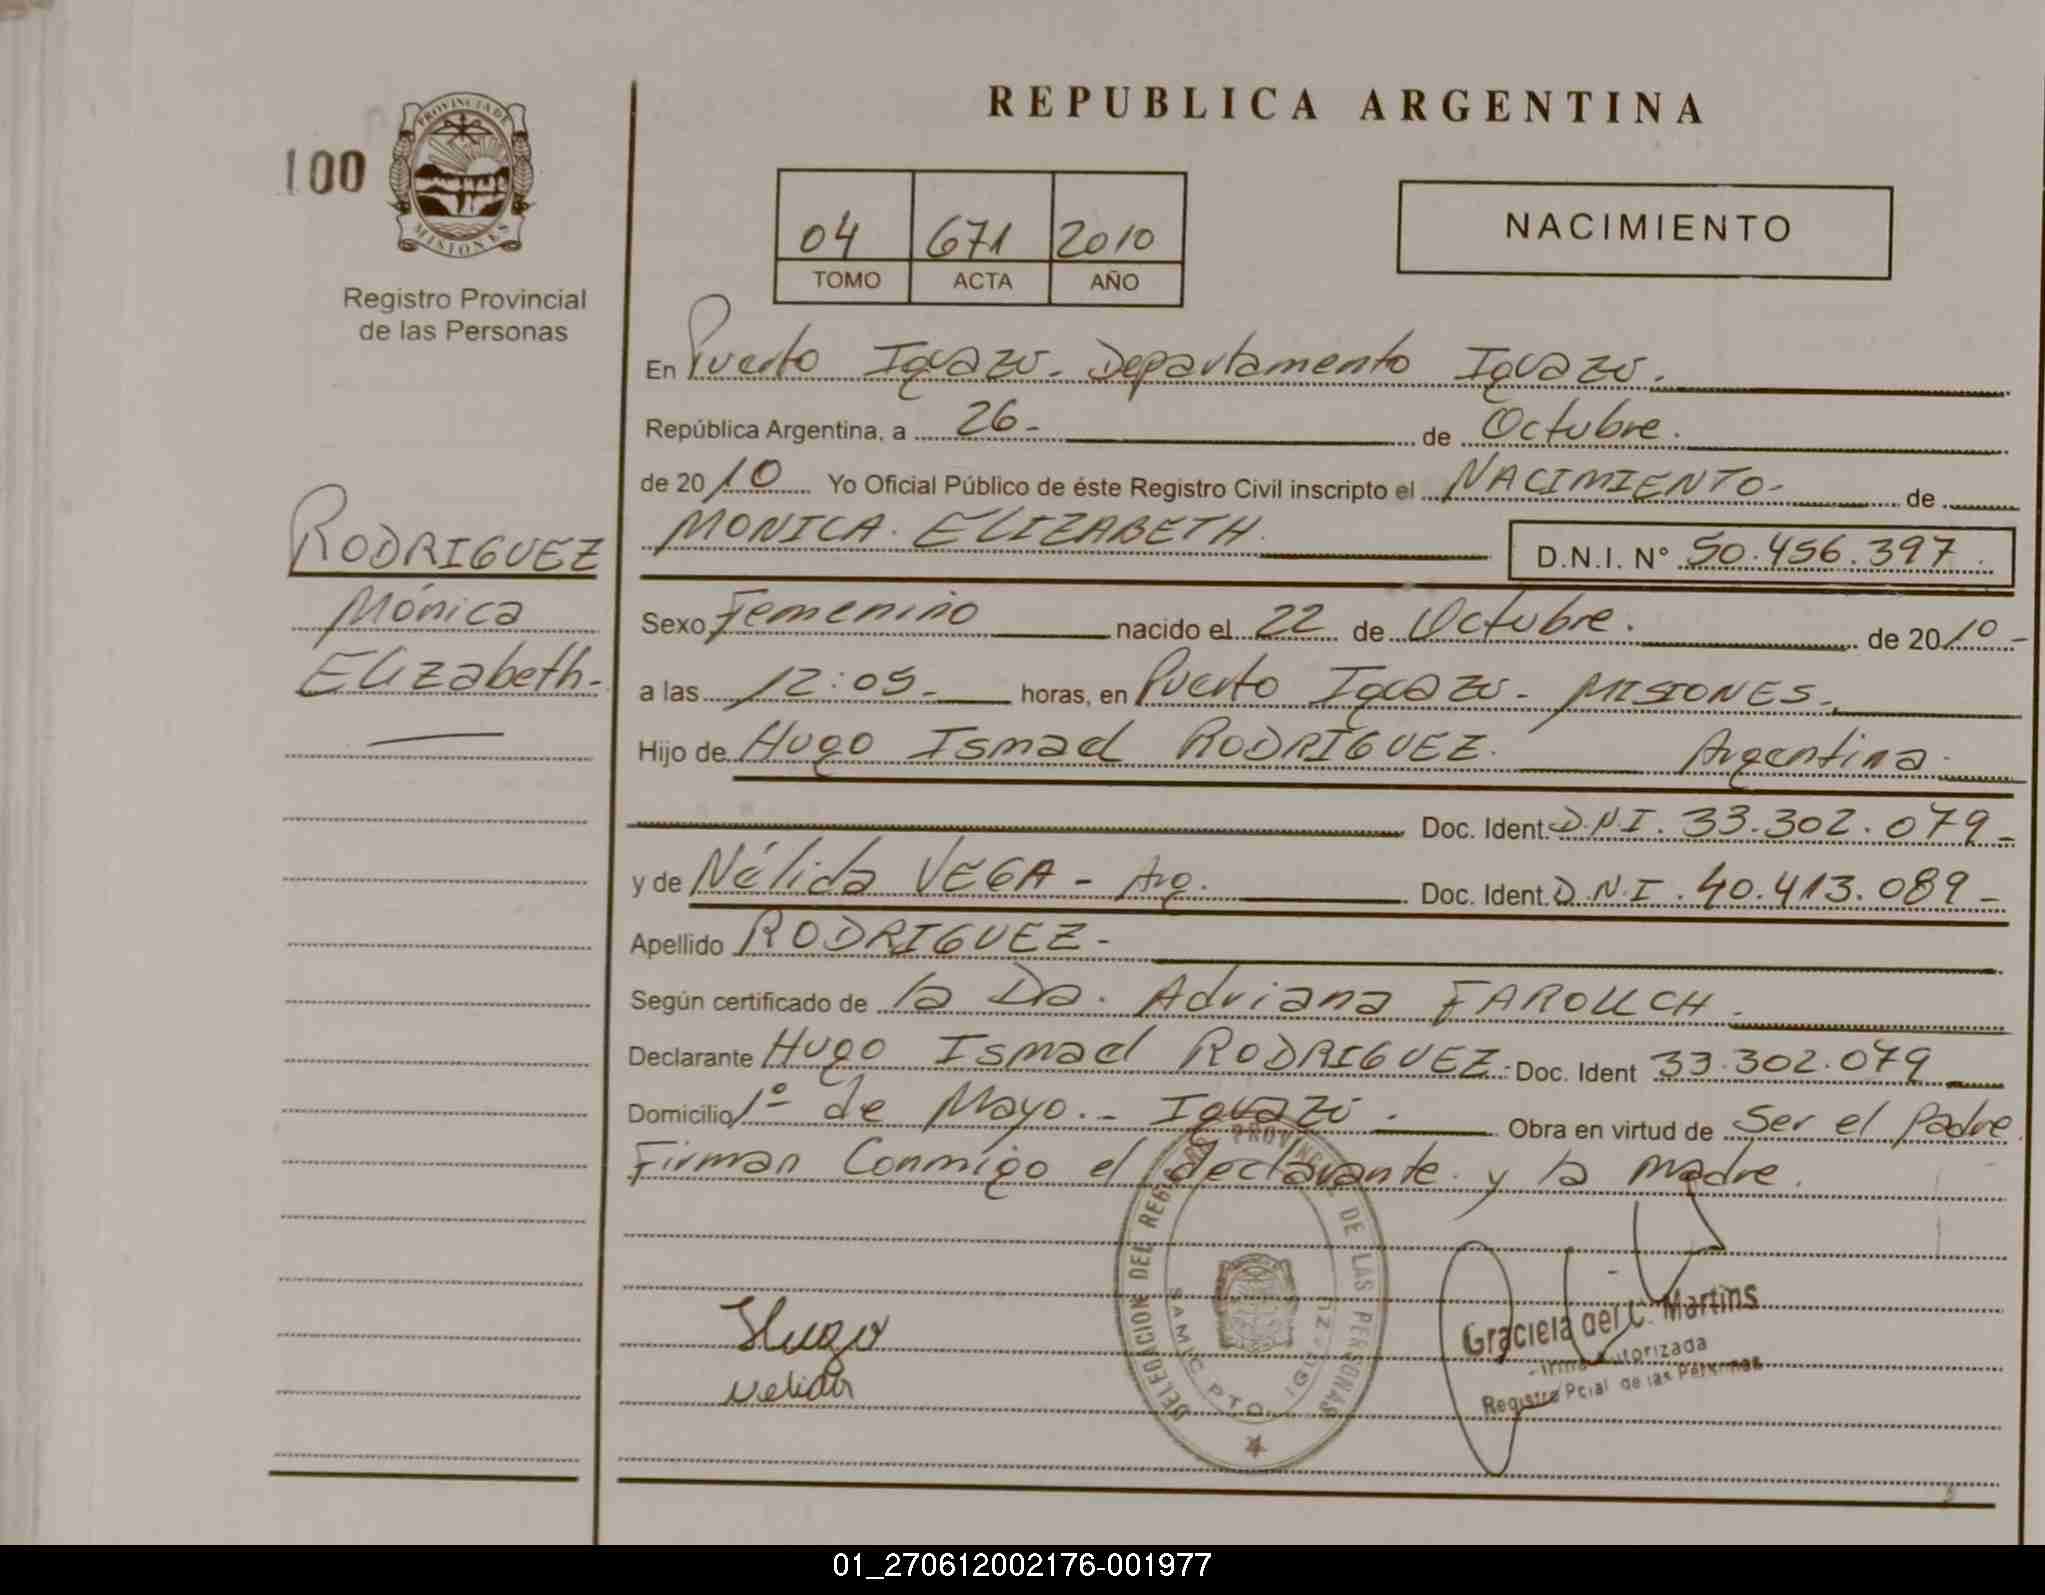 REPUBLICA ARGENTINA
100
PROVINCIA DE
MISIONES
Registro Provincial
de las Personas
04 671 2010
TOMO ACTA AÑO
NACIMIENTO
RODRIGUEZ
Mónica
Elizabeth-
En Puerto Iguazú. Departamento Iguazú.
República Argentina, a 26- de Octubre.
de 2010 Yo Oficial Público de éste Registro Civil inscripto el NACIMIENTO- de
MONICA ELIZABETH. D.N.I. N° 50.456.397.
Sexo Femenino nacido el 22 de Octubre. de 2010-
a las 12:05- horas, en Puerto Iguazú- MISIONES-
Hijo de Hugo Ismael RODRIGUEZ. Argentina.
Doc. Ident. D.N.I. 33.302.079-
y de Nélida VEGA - Arg. Doc. Ident. D.N.I. 40.413.089-
Apellido RODRIGUEZ-
Según certificado de la Dra. Adriana
Declarante Hugo Ismael RODRIGUEZ. Doc. Ident 33.302.079
Domicilio 1º de Mayo.- Iguazú. Obra en virtud de Ser el padre.
Firman Conmigo el declarante y la madre.
DELEGACION DEL REGISTRO PROVINCIAL DE LAS PERSONAS
SAMIC PTO. IGUAZU
Hugo
Nelida
Graciela del C. Martins
Firma Autorizada
Registro Pcial de las Personas
01_270612002176-001977